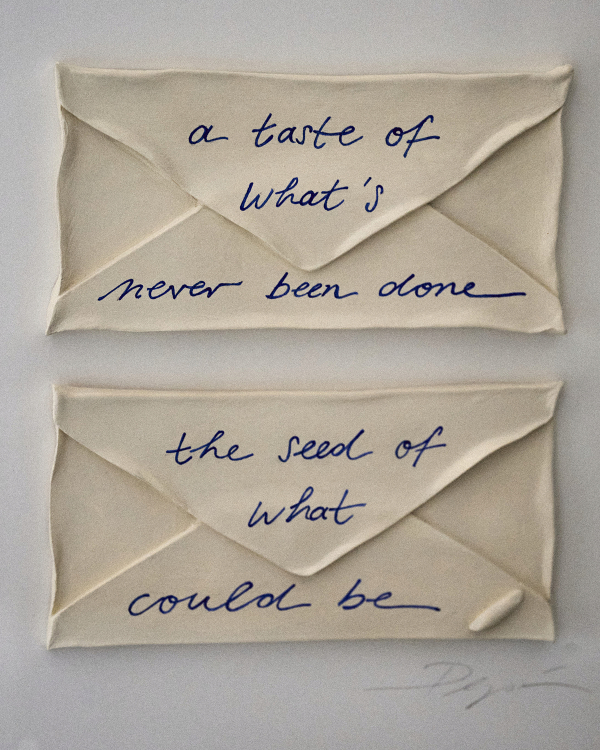 a taste of
what's
never been done
the seed of
what
could be